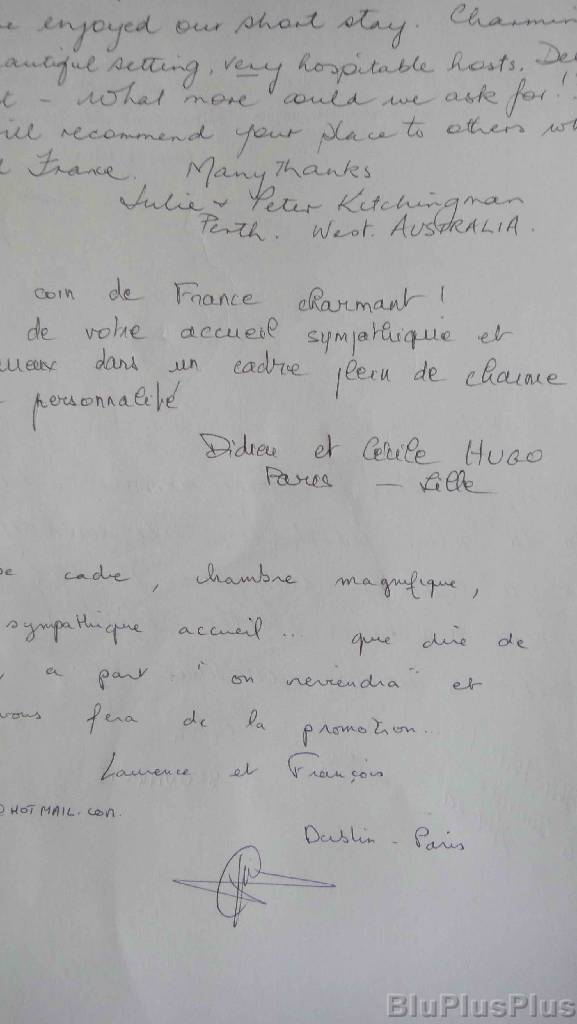 enjoyed our short stay. Charmin
autiful setting, very hospitable hosts. De
t - What more could we ask for!
ill recommend your place to others w
France. Many Thanks
Julie & Peter Kitchingman
Perth. West. AUSTRALIA.
coin de France charmant !
de votre accueil sympathique et
ueux dans un cadre plein de charme
personnalité
Didier et Cécile HUGO
Paris - Lille
cadre, chambre magnifique,
sympathique accueil.. que dire de
a part "on reviendra" et
vous fera de la promotion..
Laurence et François
@HOTMAIL.COM.
Dublin - Paris
BluPlusPlus